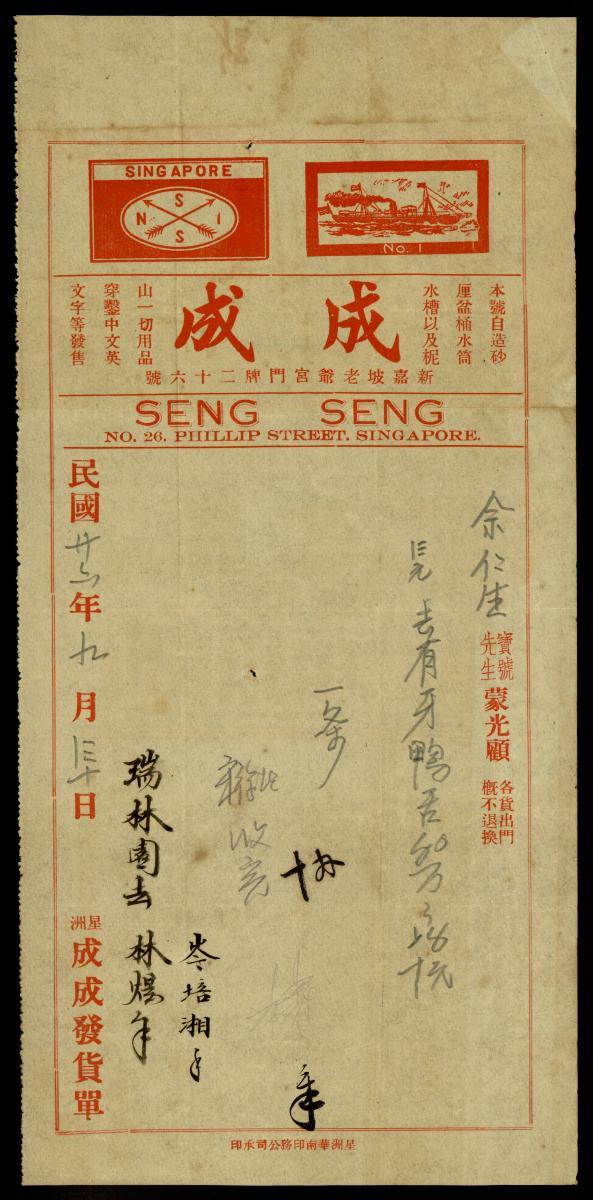 SINGAPORE
N S I S
No. 1
本號自造砂
厘盆桶水筒
水槽以及柅
成成
山一切用品
穿鑿中文英
文字等發售
新嘉坡老爺宮門牌二十六號
SENG SENG
NO. 26, PHILLIP STREET, SINGAPORE.
余仁生 寶號 先生 蒙光顧 各貨出門 概不退換
去有牙鴨舌
收亮
岑培湘
瑞林園去 林煜
民國廿六年九月日
星洲 成成發貨單
星洲華南印務公司承印